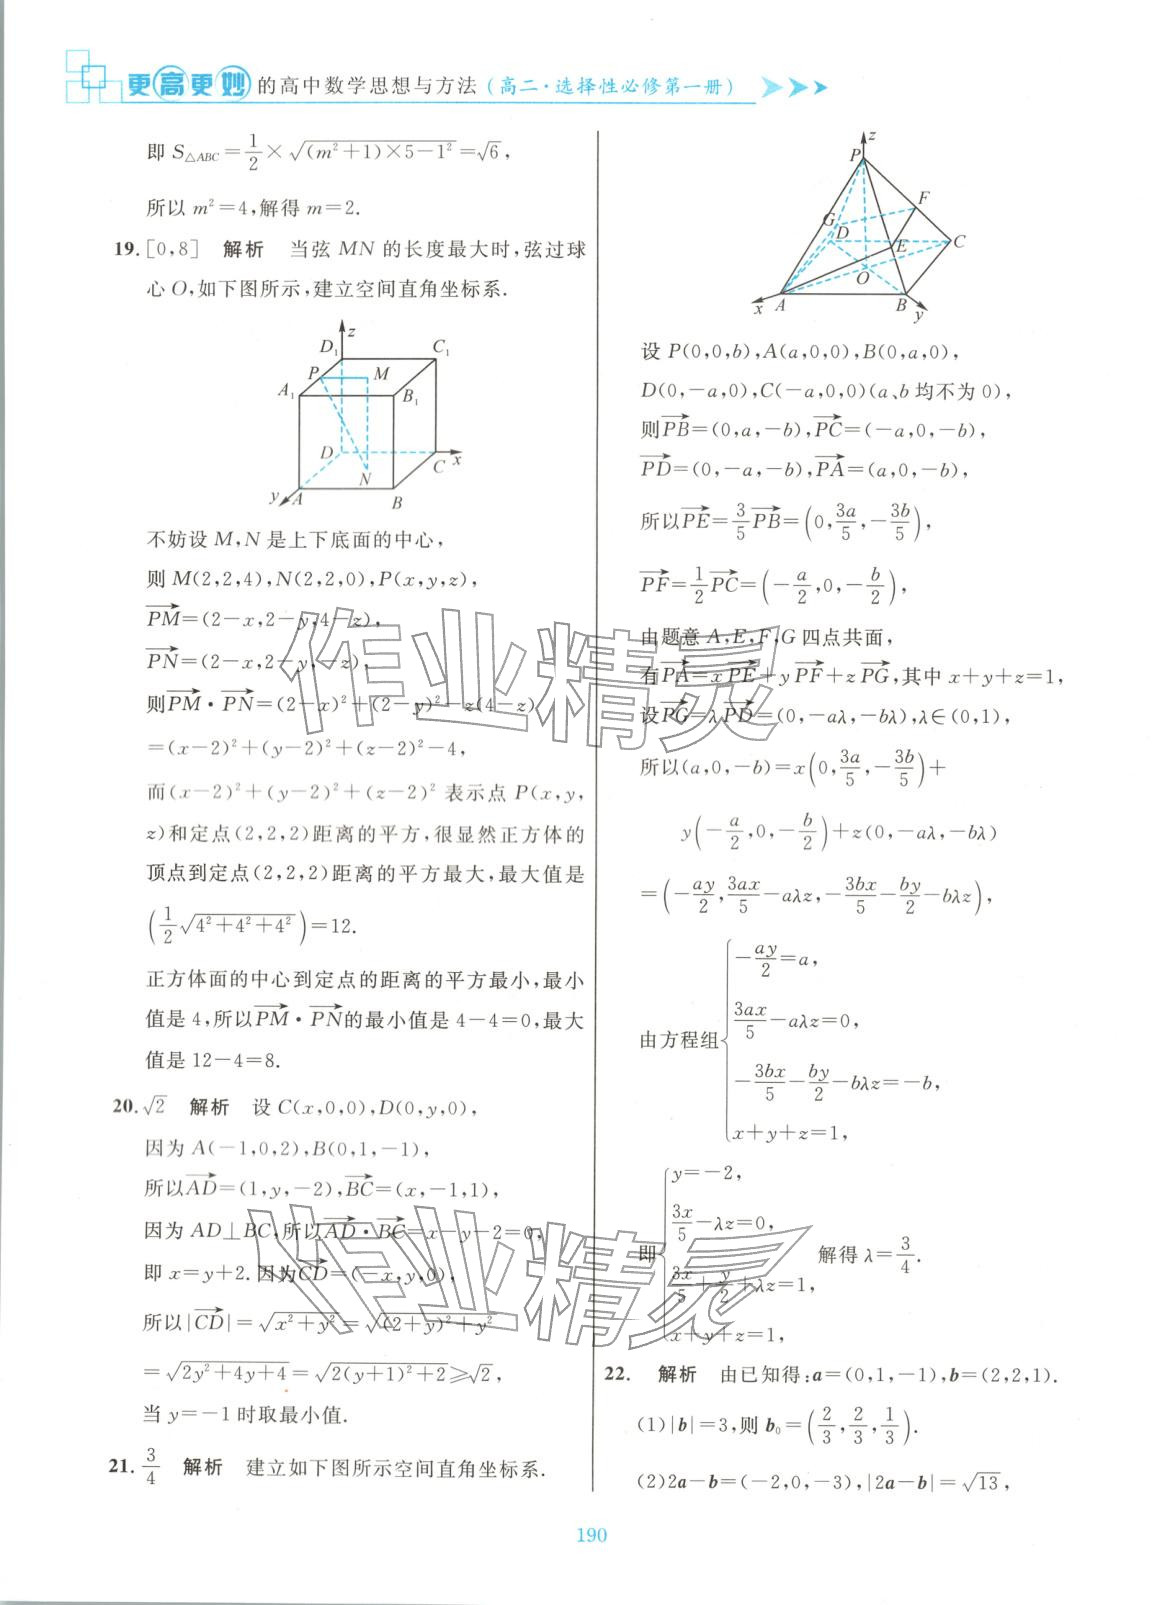 更高更妙的高中数学思想与方法(高二·选择性必修第一册)
即 S△ABC=1/2×√((m²+1)×5-1²)=√6,
所以 m²=4,解得 m=2.
19. [0,8] 解析 当弦 MN 的长度最大时,弦过球
心 O,如下图所示,建立空间直角坐标系.
z
D₁ C₁
P M
A₁ B₁
D C x
N
y A B
不妨设 M,N 是上下底面的中心,
则 M(2,2,4),N(2,2,0),P(x,y,z),
PM→=(2-x,2-y,4-z),
PN→=(2-x,2-y,-z),
则PM→·PN→=(2-x)²+(2-y)²-z(4-z)
=(x-2)²+(y-2)²+(z-2)²-4,
而(x-2)²+(y-2)²+(z-2)² 表示点 P(x,y,
z)和定点(2,2,2)距离的平方,很显然正方体的
顶点到定点(2,2,2)距离的平方最大,最大值是
(1/2 √(4²+4²+4²))=12.
正方体面的中心到定点的距离的平方最小,最小
值是 4,所以PM→·PN→的最小值是 4-4=0,最大
值是 12-4=8.
20. √2 解析 设 C(x,0,0),D(0,y,0),
因为 A(-1,0,2),B(0,1,-1),
所以AD→=(1,y,-2),BC→=(x,-1,1),
因为 AD⊥BC,所以AD→·BC→=x-y-2=0,
即 x=y+2.因为CD→=(-x,y,0),
所以|CD→|=√(x²+y²)=√((2+y)²+y²)
=√(2y²+4y+4)=√(2(y+1)²+2)≥√2,
当 y=-1 时取最小值.
21. 3/4 解析 建立如下图所示空间直角坐标系.
z
P
F
G
D C
E
O
x A B
y
设 P(0,0,b),A(a,0,0),B(0,a,0),
D(0,-a,0),C(-a,0,0)(a、b 均不为 0),
则PB→=(0,a,-b),PC→=(-a,0,-b),
PD→=(0,-a,-b),PA→=(a,0,-b),
所以PE→=3/5 PB→=(0,3a/5,-3b/5),
PF→=1/2 PC→=(-a/2,0,-b/2),
由题意 A,E,F,G 四点共面,
有PA→=xPE→+yPF→+zPG→,其中 x+y+z=1,
设PG→=λPD→=(0,-aλ,-bλ),λ∈(0,1),
所以(a,0,-b)=x(0,3a/5,-3b/5)+
y(-a/2,0,-b/2)+z(0,-aλ,-bλ)
=(-ay/2,3ax/5-aλz,-3bx/5-by/2-bλz),
由方程组
-ay/2=a,
3ax/5-aλz=0,
-3bx/5-by/2-bλz=-b,
x+y+z=1,
即
y=-2,
3x/5-λz=0,
3x/5+y/2+λz=1,
x+y+z=1,
解得 λ=3/4.
22. 解析 由已知得:a=(0,1,-1),b=(2,2,1).
(1)|b|=3,则 b₀=(2/3,2/3,1/3).
(2)2a-b=(-2,0,-3),|2a-b|=√13,
190
作业精灵
作业精灵